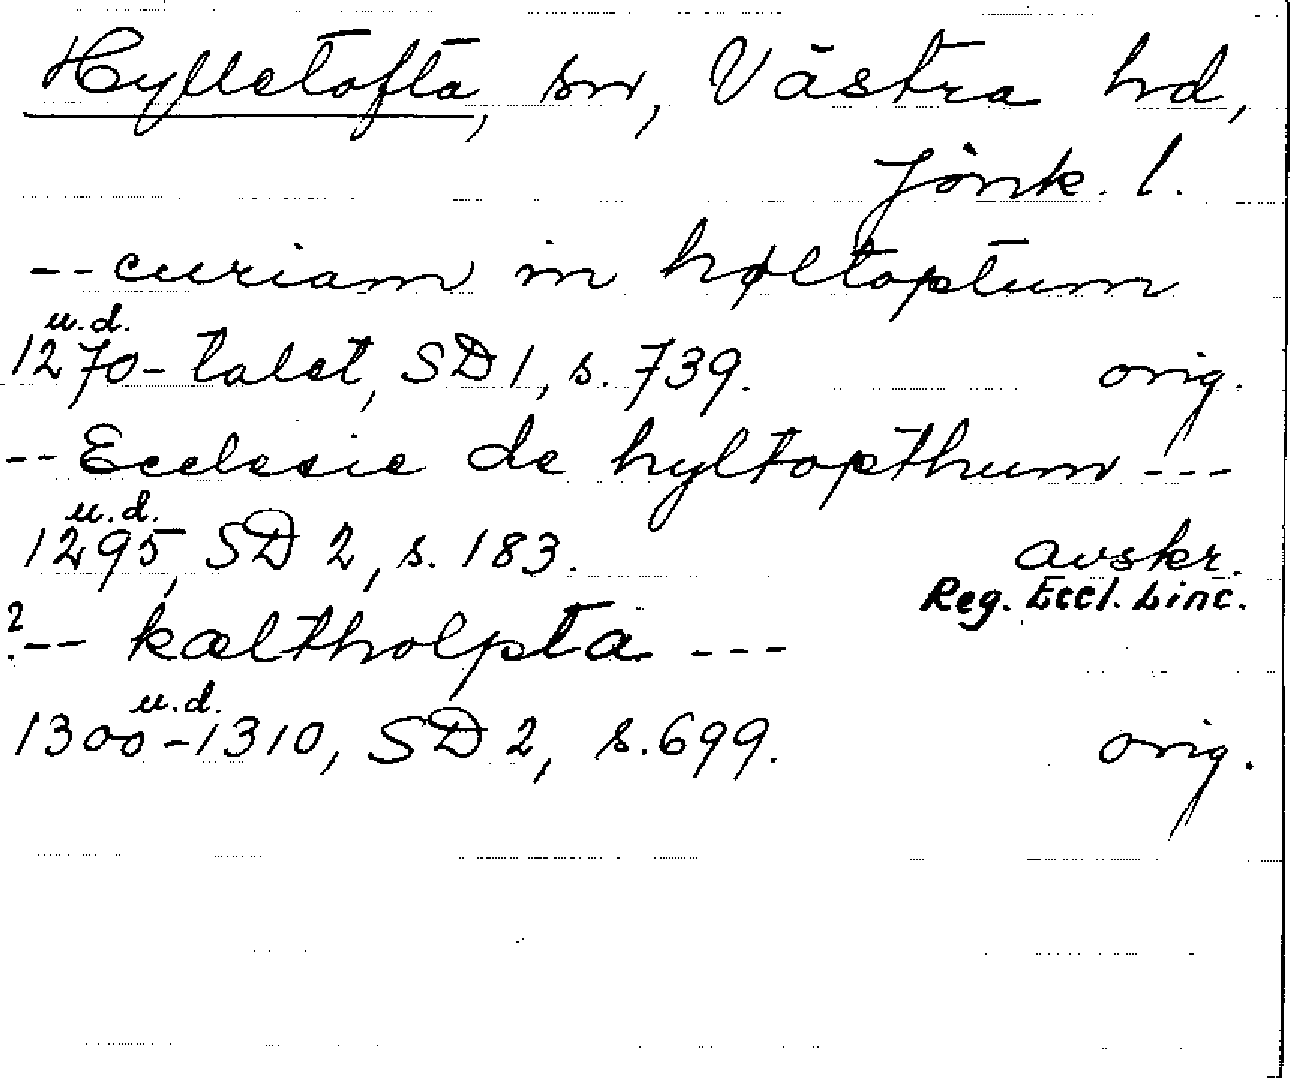 Hylletofta, sn, Västra hd,
Jönk. l.
-- curiam in høltoptum
u.d.
1270-talet, SD 1, s. 739. orig.
-- Ecclesie de hyltopthum ---
u.d.
1295, SD 2, s. 183. avskr.
Reg. Eccl. Linc.
? -- kæltholpta ---
u.d.
1300-1310, SD 2, s. 699. orig.